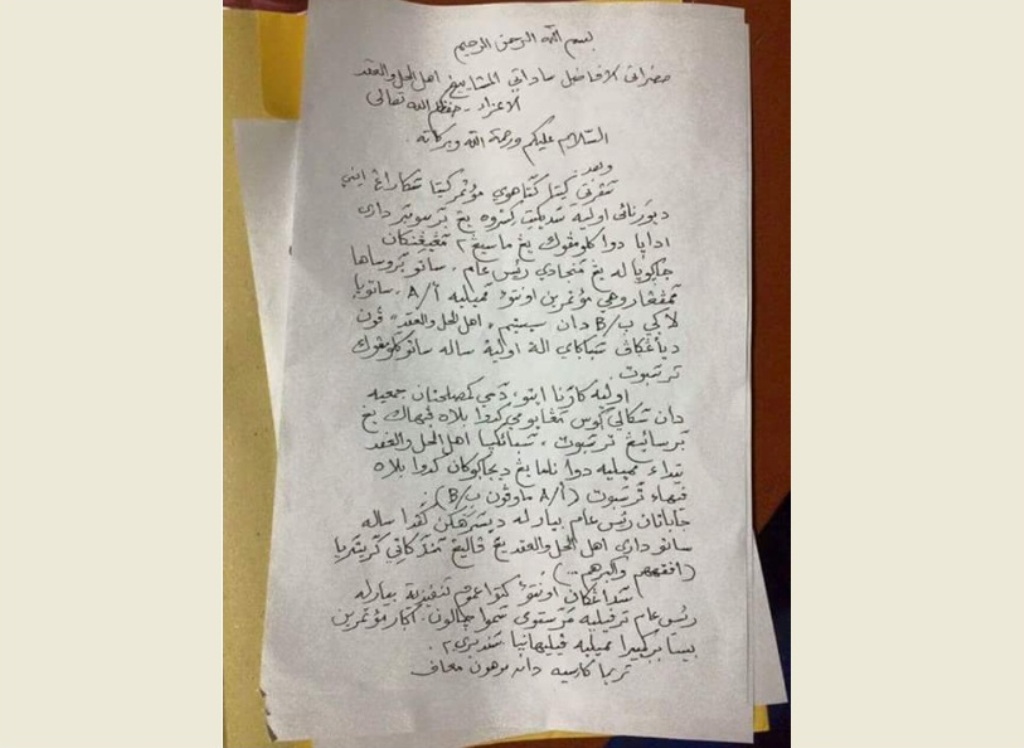 بسم الله الرحمن الرحيم
حضرات الافاضل ساداتي المشاييخ اهل الحل والعقد
الاعزاء - حفظكم الله تعالى
السلام عليكم ورحمة الله وبركاته.
وبعد.
سڤرتي كيتا كتاهوي مؤتمر كيتا سكاراڠ ايني
دورنائي اوليه سديكيت كسروه يڠ برسومبر داري
ادايا دوا كلومڤوك يڠ ماسيڠ٢ مڠيڠنكان
جاكويا له يڠ منجادي رئيس عام. ساتو بروساها
ممڤڠاروهي مؤتمرين اونتوء مميليه أ/A. ساتويا
لاكي ب/B دان سيستيم "اهل الحل والعقد" ڤون
دياڠكاڤ سباكاي الة اوليه ساله ساتو كلومڤوك
ترسبوت.
اوليه كارنا ايتو، دمي كمصلحتان جمعيه
دان سكاليكوس مڠايومي كدوا بلاه ڤيهاك يڠ
برسائيڠ ترسبوت، سبائكيا اهل الحل والعقد
تيداء مميليه دوا ناما يڠ ديجاكوكان كدوا بلاه
ڤيهاء ترسبوت (أ/A ماوڤون ب/B).
جاباتان رئيس عام بيار له ديسرهكن كڤدا ساله
ساتو داري اهل الحل والعقد يڠ ڤاليڠ منداكاتي كريتريا
(افقههم واكبرهم ..).
سداڠكان اونتوء كتوا عموم تنفيذية بيار له
رئيس عام ترڤيليه مرستوي سموا چالون. اكار مؤتمرين
بيسا بركمبيرا مميليه ڤيليهانيا سنديري٢.
تريما كاسيه دان موهون معاف